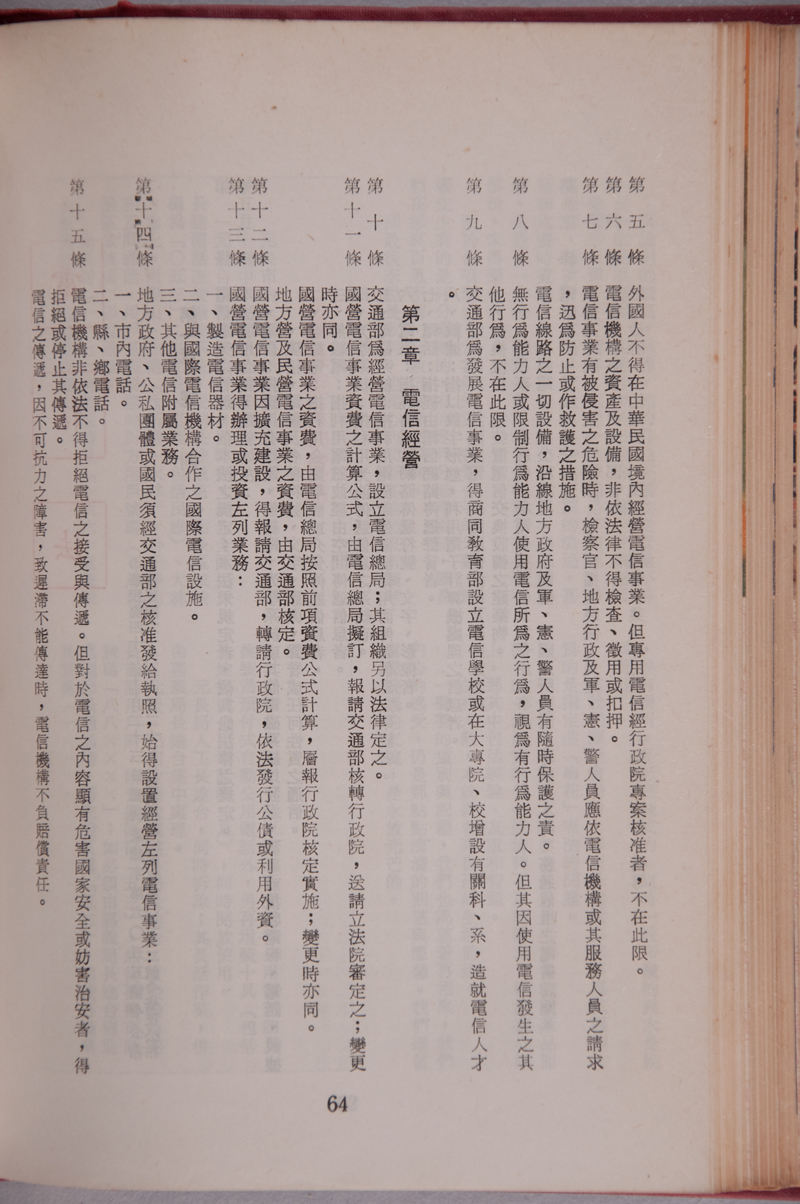 第五條　外國人不得在中華民國境內經營電信事業。但專用電信經行政院專案核准者，不在此限。
第六條　電信機構之資產及設備，非依法律不得檢查、徵用或扣押。
第七條　電信事業有被侵害之危險時，檢察官、地方行政及軍、憲、警人員應依電信機構或其服務人員之請求
，迅爲防止或作救護之措施。
電信線路之一切設備，沿線地方政府及軍、憲、警人員有隨時保護之責。
第八條　無行爲能力人或限制行爲能力人使用電信所爲之行爲，視爲有行爲能力人。但其因使用電信發生之其
他行爲，不在此限。
第九條　交通部爲發展電信事業，得商同教育部設立電信學校或在大專院、校增設有關科、系，造就電信人才
。
第二章　電信經營
第十條　交通部爲經營電信事業，設立電信總局；其組織另以法律定之。
第十一條　國營電信事業資費之計算公式，由電信總局擬訂，報請交通部核轉行政院，送請立法院審定之；變更
時亦同。
國營電信事業之資費，由電信總局按照前項資費公式計算，層報行政院核定實施；變更時亦同。
地方營及民營電信事業之資費，由交通部核定。
第十二條　國營電信事業因擴充建設，得報請交通部，轉請行政院，依法發行公債或利用外資。
第十三條　國營電信事業得辦理或投資左列業務：
一、製造電信器材。
二、與國際電信機構合作之國際電信設施。
三、其他電信附屬業務。
第十四條　地方政府、公私團體或國民須經交通部之核准發給執照，始得設置經營左列電信事業：
一、市內電話。
二、縣、鄉電話。
第十五條　電信機構非依法不得拒絕電信之接受與傳遞。但對於電信之內容顯有危害國家安全或妨害治安者，得
拒絕或停止其傳遞。
電信之傳遞，因不可抗力之障害，致遲滯不能傳達時，電信機構不負賠償責任。
64